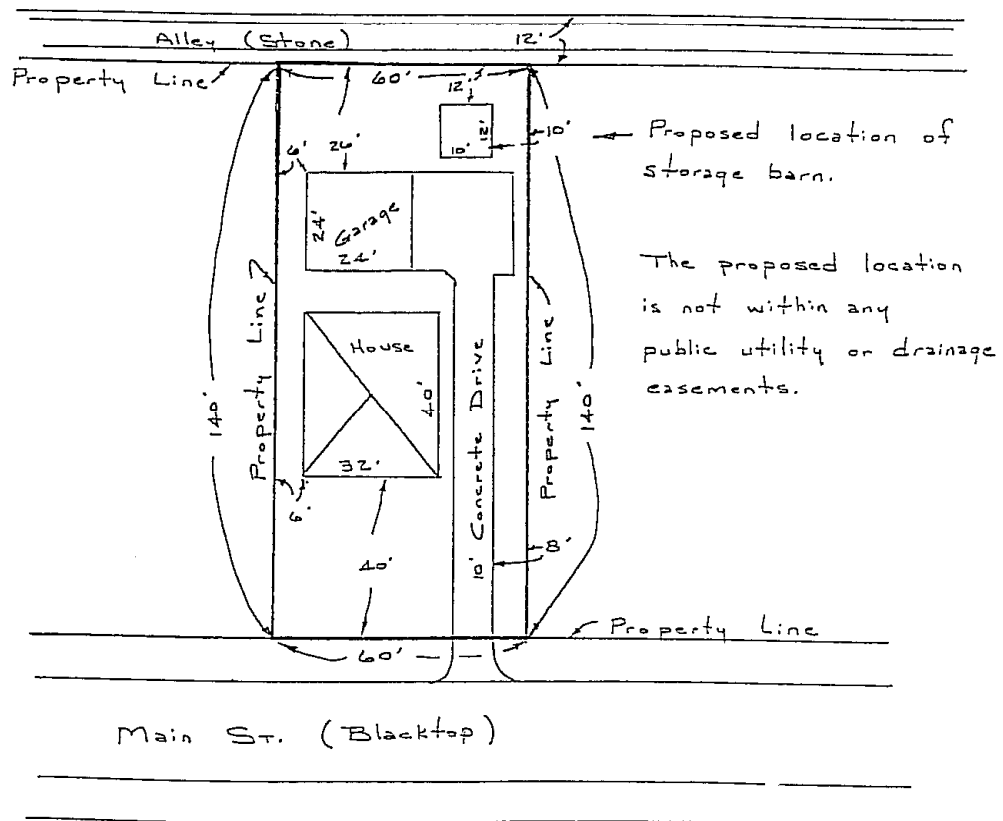 Alley (Stone)
12'
Property Line
60'
12'
12'
10'
10'
Proposed location of
storage barn.
6'
26'
24'
Garage
24'
The proposed location
is not within any
public utility or drainage
easements.
140'
Property Line
House
40'
32'
10' Concrete Drive
Property Line
140'
6'
40'
8'
Property Line
60'
Main St. (Blacktop)